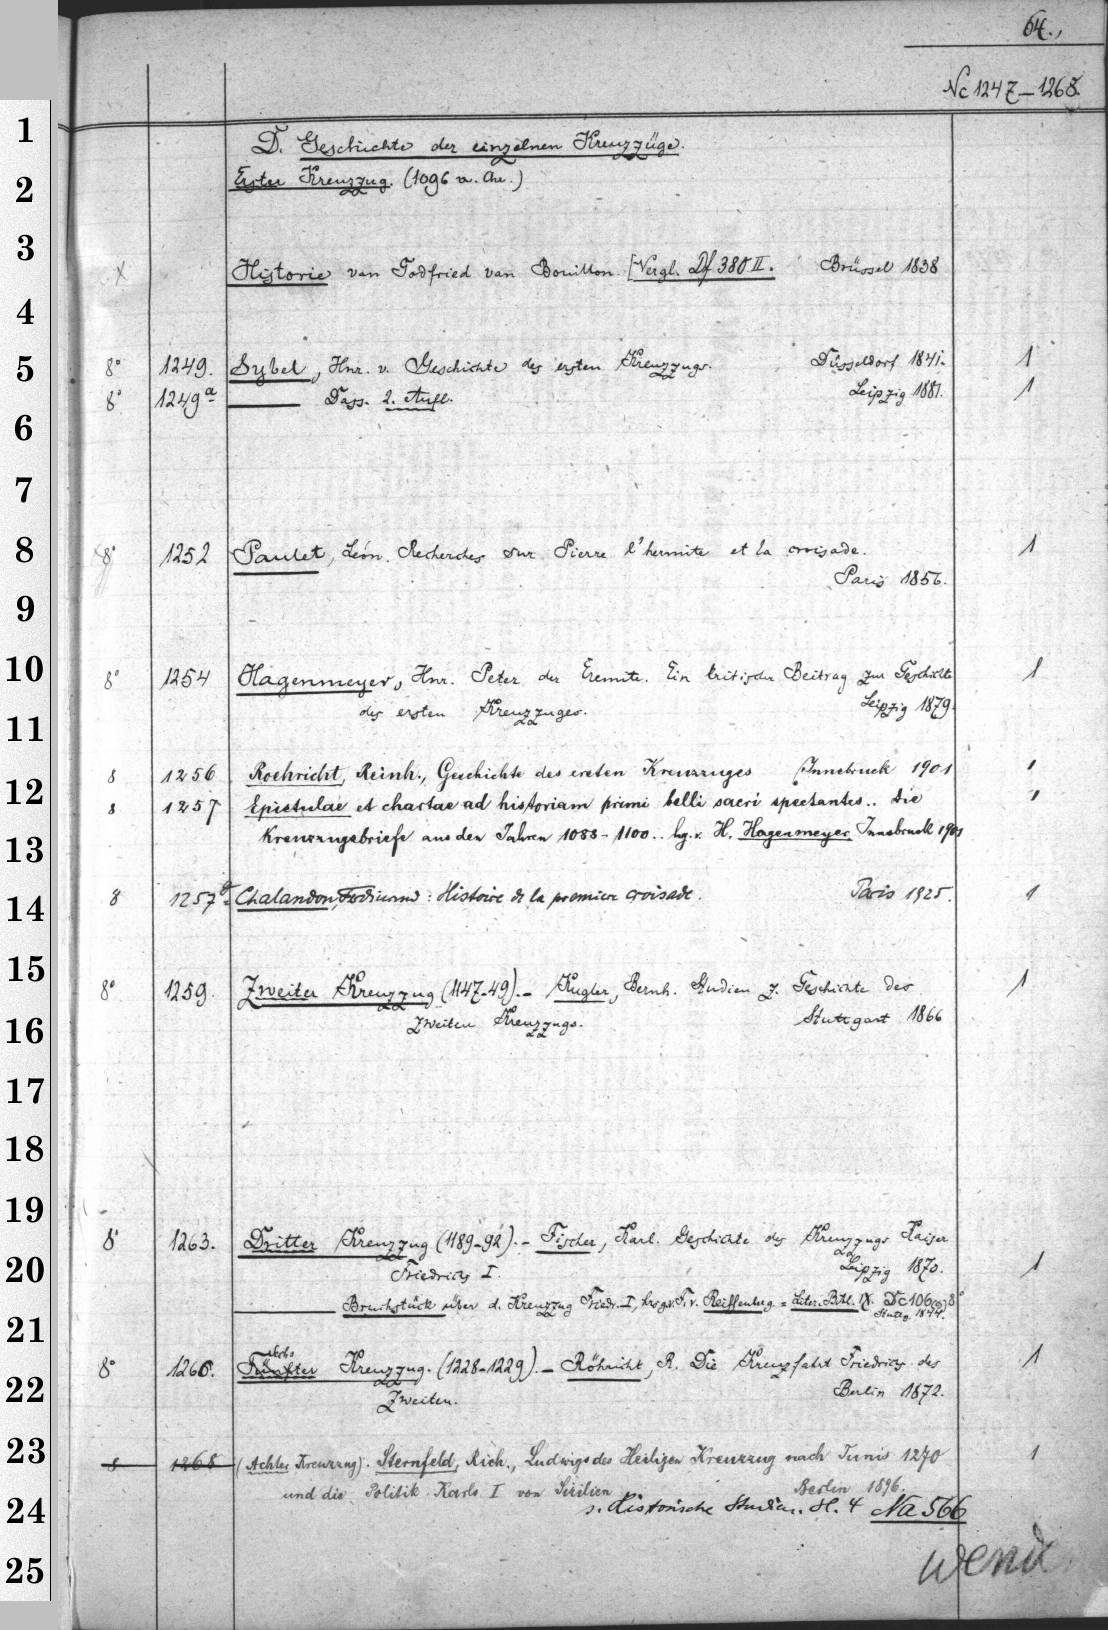 64.,
Nc 1247–1268
D. Geschichte der einzelnen Kreuzzüge.
Erster Kreuzzug. (1096 n. Chr.)
X Historie van Godfried van Bouillon. [Vergl. Df. 380 II. Brüssel 1838
8° 1249. Sybel, Hnr. v. Geschichte des ersten Kreuzzugs. Düsseldorf 1841. 1
8° 1249a ——— Dass. 2. Aufl. Leipzig 1881. 1
8° 1252 Paulet, Léon. Recherches sur Pierre l'hermite et la croisade. 1
Paris 1856.
8° 1254 Hagenmeyer, Hnr. Peter der Eremite. Ein kritischer Beitrag zur Geschichte 1
des ersten Kreuzzuges. Leipzig 1879.
8 1256 Roehricht, Reinh., Geschichte des ersten Kreuzzuges Innsbruck 1901 '
8 1257 Epistulae et chartae ad historiam primi belli sacri spectantes.. Die '
Kreuzzugsbriefe aus den Jahren 1088–1100.. hg. v. H. Hagenmeyer Innsbruck 1901
8 1257a Chalandon, Ferdinand: Histoire de la première croisade. Paris 1925. 1
8° 1259. Zweiter Kreuzzug (1147-49).– Kugler, Bernh. Studien z. Geschichte des 1
Zweiten Kreuzzugs. Stuttgart 1866
8° 1263. Dritter Kreuzzug (1189–92).– Fischer, Karl. Geschichte des Kreuzzugs Kaiser
Friedrichs I. Leipzig 1870. 1
——— Bruchstück über d. Kreuzzug Friedr. I, hrsg. v. F. v. Reiffenberg = Liter. Bibl. IX. Dc 106(9) 8°
Stuttg. 1844.
sechster
8° 1266. Fünfter Kreuzzug. (1228–1229).– Röhricht, R. Die Kreuzfahrt Friedrichs des 1
Zweiten. Berlin 1872.
8 1268 (Achter Kreuzzug). Sternfeld, Rich., Ludwigs des Heiligen Kreuzzug nach Tunis 1270 1
und die Politik Karls I von Sizilien Berlin 1896.
s. Historische Studien. H. 4 Na 566